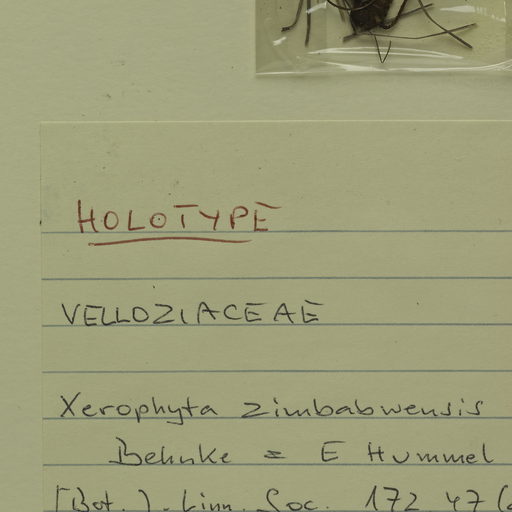 HOLOTYPE
VELLOZIACEAE
Xerophyta zimbabwensis
Behnke = E Hummel
[Bot. J. Linn. Soc. 172 47